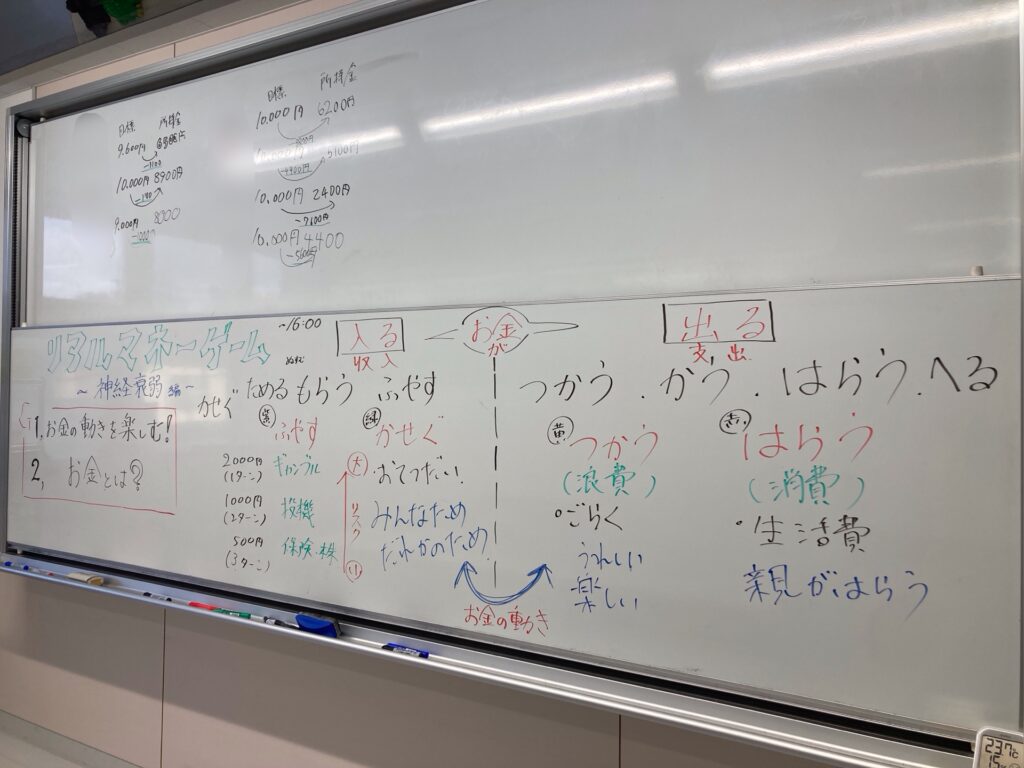 目標 所持金
9.600円
-1100
10.000円 8900円
9.000円 8000
-1000
目標 所持金
10.000円 6200円
5100円
-4900円
10.000円 2400円
-7600円
10.000円 4400
-5600円
リアルマネーゲーム
~16:00
~神経衰弱編~
1. お金の動きを楽しむ!
2, お金とは?
入る
収入
お金が
出る
支出
かせぐ ためる もらう ふやす
つかう.かう.はらう.へる
ふやす
2000円 ギャンブル
(1ターン)
1000円 投機
(2ターン)
500円 保険.株
(3ターン)
大
リスク
小
緑
かせぐ
おてつだい!
みんなため
だれかのため
お金の動き
黄
つかう
(浪費)
・ごらく
うれしい
楽しい
赤い
はらう
(消費)
・生活費
親がはらう
23.7℃